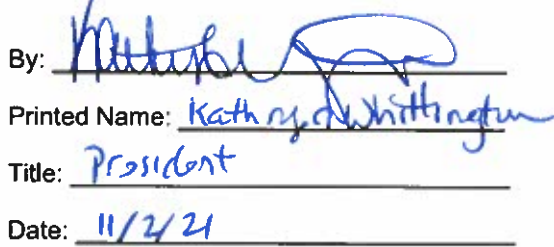 By:
Printed Name: Kathryn Whittington
Title: President
Date: 11/2/21